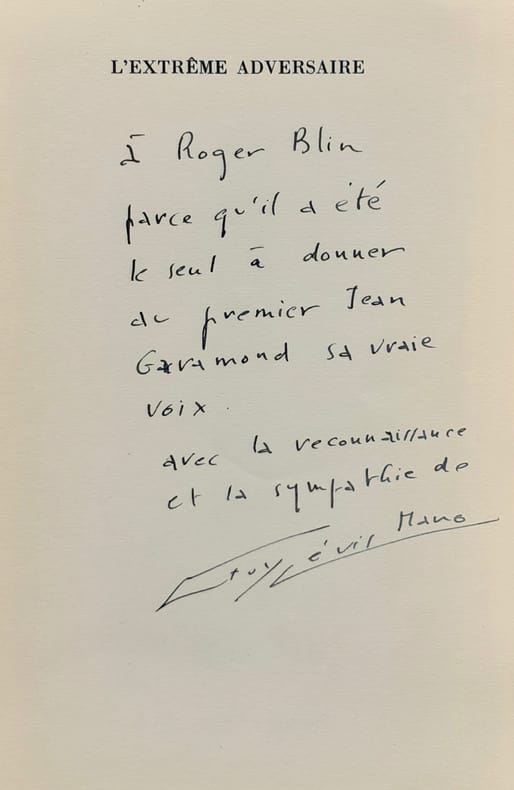 L'EXTRÊME ADVERSAIRE
à Roger Blin
parce qu'il a été
le seul à donner
au premier Jean
Garamond sa vraie
voix.
avec la reconnaissance
et la sympathie de
Guy Lévis Mano